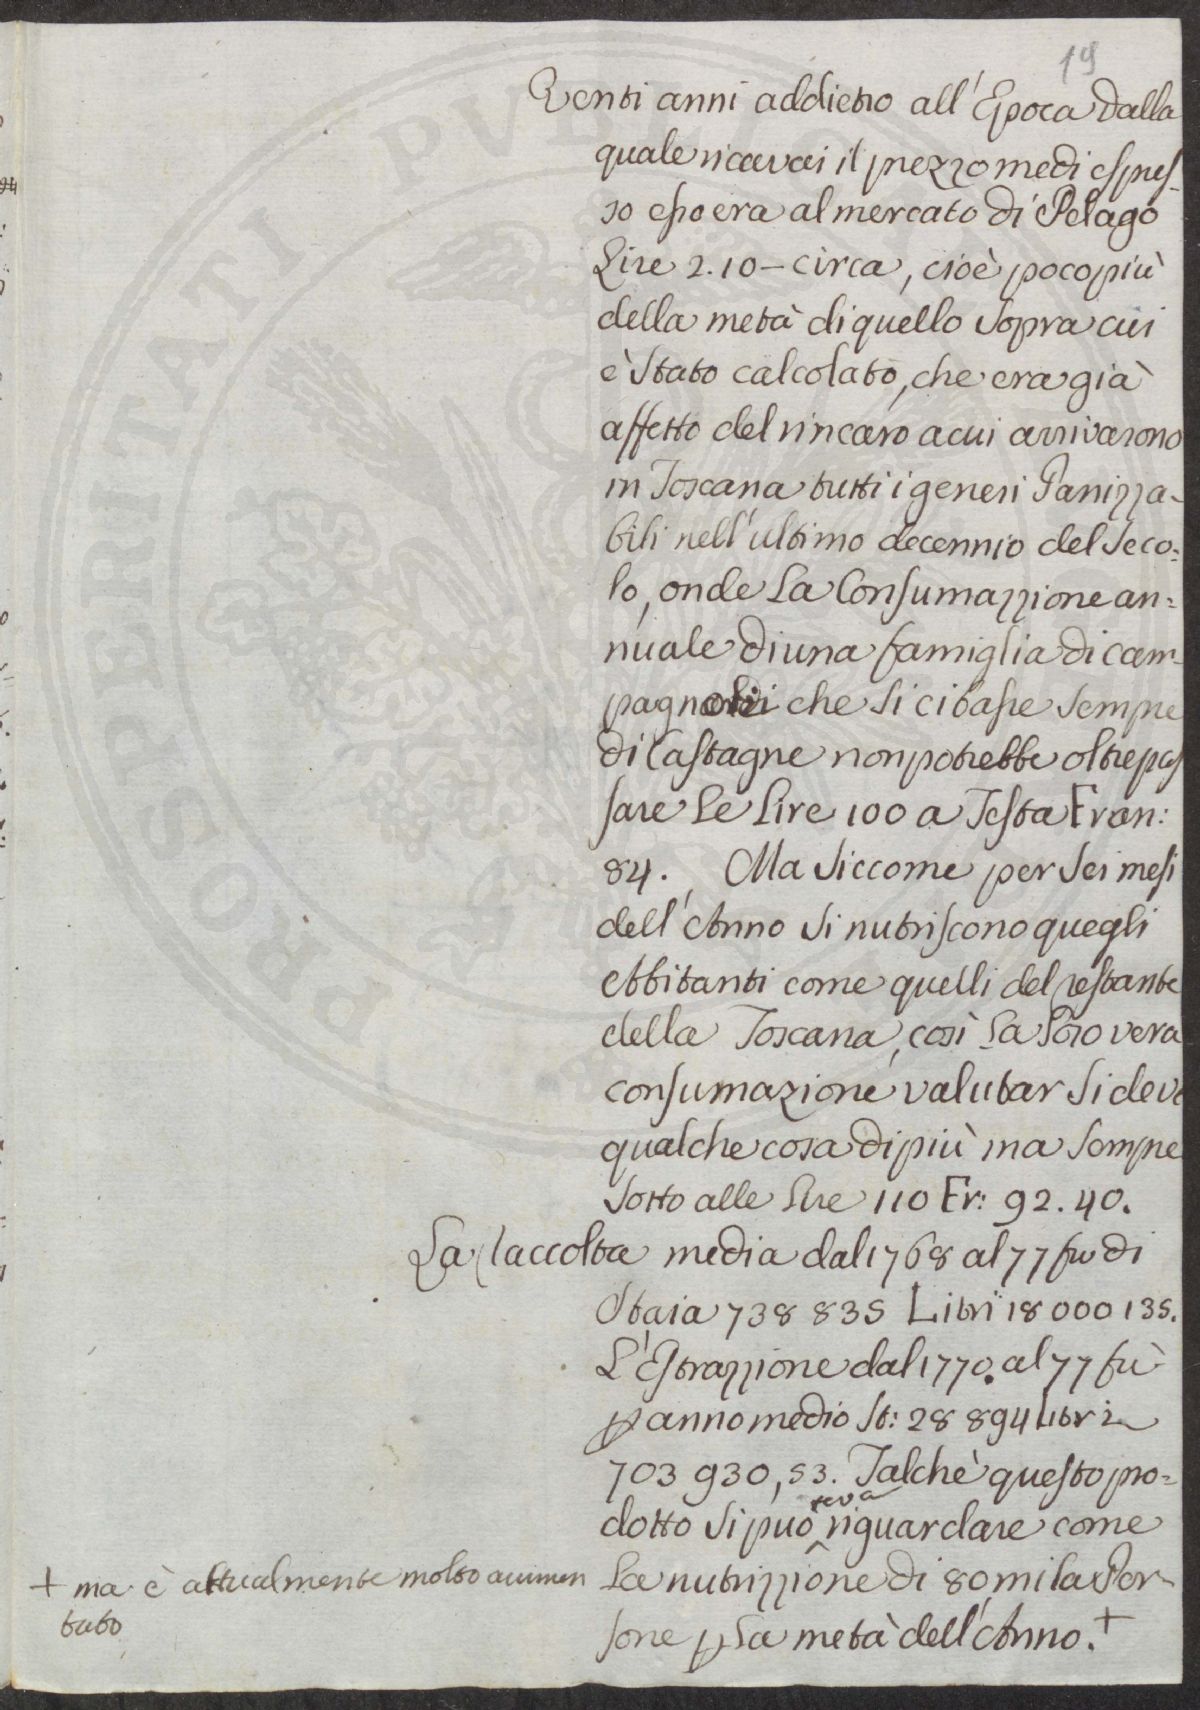 19
Venti anni addietro all'Epoca dalla
quale ricavai il prezzo medi espres-
so esso era al mercato di Pelago
Lire 2.10 – circa, cioè poco più
della metà di quello sopra cui
è stato calcolato, che era già
affetto del rincaro a cui arrivarono
in Toscana tutti i generi Panizza-
bili nell'ultimo decennio del Seco=
lo, onde la Consumazzione an=
nuale di una famiglia di cam-
pagnoli che si cibasse sempre
di Castagne non potrebbe oltrepas
sare le Lire 100 a Testa Fran:
84. Ma siccome per sei mesi
dell'Anno si nutriscono quegli
Abbitanti come quelli del restante
della Toscana, così la loro vera
consumazione valutar si deve
qualche cosa di più ma sempre
sotto alle Lire 110 Fr: 92.40.
La Raccolta media dal 1768 al 77 fu di
Staia 738 835 Libri 18 000 135.
L'Estrazzione dal 1770. al 77 fù
p anno medio St: 28 894 Libri
703 930,53. Talchè questo pro=
teva
dotto si può riguardare come
la nutrizzione di 80 mila Per-
sone p la metà dell'Anno. +
+ ma è attualmente molto aumen
tato
PROSPERITATI PVBLICAE